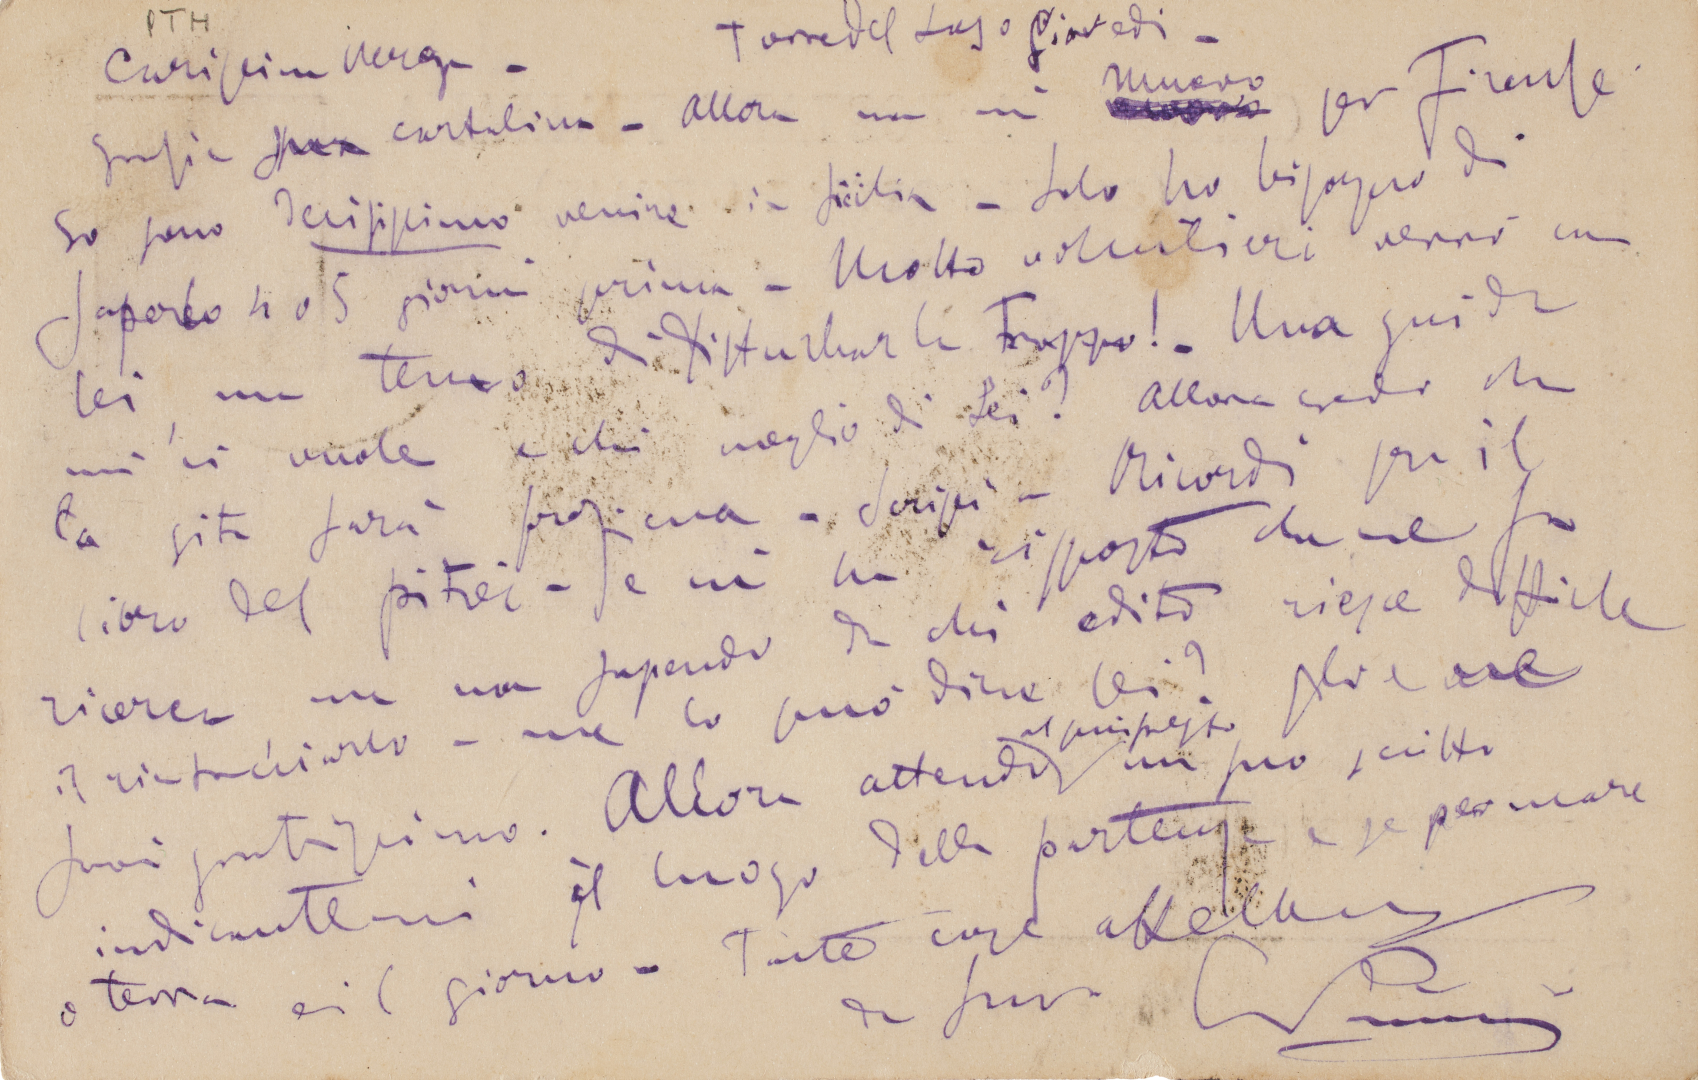 PTH
Torre del Lago Giovedi -
Carissimo Verga -
Grazie cartolina - Allora non mi muovo per Firenze.
Io sono decisissimo venire in Sicilia - solo ho bisogno di
saperlo 4 o 5 giorni prima - Molto volentieri verrò con
lei, ma temo di disturbarla Troppo! - Una guida
mi ci vuole e chi meglio di Lei? Allora credo che
la gita sarà prossima - Scrissi a Ricordi per il
libro del pitrei - e mi ha risposto che ne fa
ricerca ma non sapendo da chi edito riesce difficile
il rintracciarlo - me lo può dire lei? gliene
sarei gratissimo. Allora attendo un suo scritto
indicantemi il luogo della partenza e se per mare
o terra e il giorno - Tante cose affettuose
da suo GPuccini